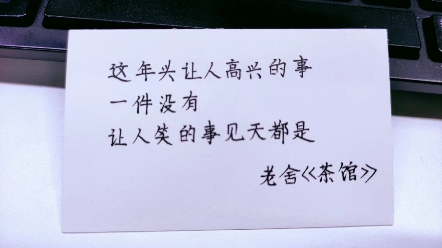 这年头让人高兴的事
一件没有
让人笑的事见天都是
老舍《茶馆》